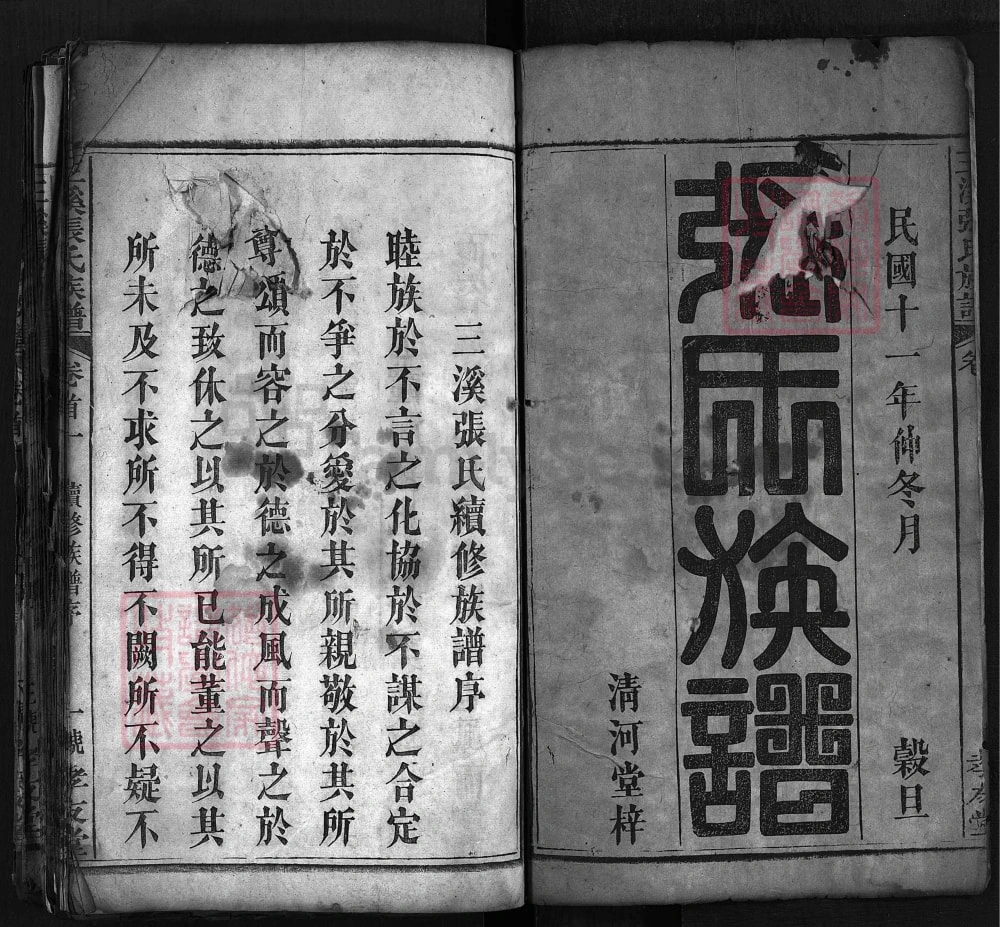 民國十一年仲冬月 穀旦
張氏族譜
清河堂梓
三溪張氏續修族譜序
睦族於不言之化協於不謀之合定
於不爭之分愛於其所親敬於其所
尊頌而容之於德之成風而聲之於
德之致休之以其所已能董之以其
所未及不求所不得不闕所不疑不
溪張氏族譜 卷首一 續修族譜序 一號 孝友堂